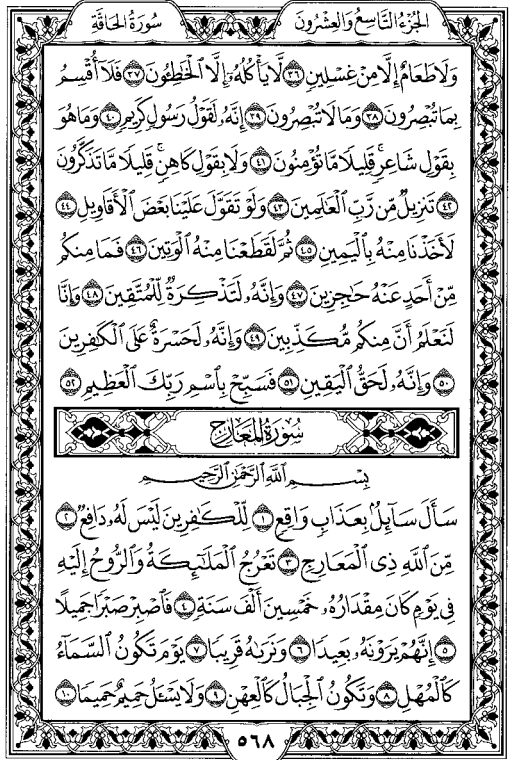 الجُزْءُ التَّاسِعُ وَالعِشْرُونَ سُورَةُ الحَاقَّةِ
وَلَا طَعَامٌ إِلَّا مِنْ غِسْلِينٍ ٣٦ لَّا يَأْكُلُهُۥٓ إِلَّا ٱلْخَٰطِـُٔونَ ٣٧ فَلَآ أُقْسِمُ
بِمَا تُبْصِرُونَ ٣٨ وَمَا لَا تُبْصِرُونَ ٣٩ إِنَّهُۥ لَقَوْلُ رَسُولٍ كَرِيمٍ ٤٠ وَمَا هُوَ
بِقَوْلِ شَاعِرٍ ۚ قَلِيلًا مَّا تُؤْمِنُونَ ٤١ وَلَا بِقَوْلِ كَاهِنٍ ۚ قَلِيلًا مَّا تَذَكَّرُونَ
٤٢ تَنزِيلٌ مِّن رَّبِّ ٱلْعَٰلَمِينَ ٤٣ وَلَوْ تَقَوَّلَ عَلَيْنَا بَعْضَ ٱلْأَقَاوِيلِ ٤٤
لَأَخَذْنَا مِنْهُ بِٱلْيَمِينِ ٤٥ ثُمَّ لَقَطَعْنَا مِنْهُ ٱلْوَتِينَ ٤٦ فَمَا مِنكُم
مِّنْ أَحَدٍ عَنْهُ حَٰجِزِينَ ٤٧ وَإِنَّهُۥ لَتَذْكِرَةٌ لِّلْمُتَّقِينَ ٤٨ وَإِنَّا
لَنَعْلَمُ أَنَّ مِنكُم مُّكَذِّبِينَ ٤٩ وَإِنَّهُۥ لَحَسْرَةٌ عَلَى ٱلْكَٰفِرِينَ
٥٠ وَإِنَّهُۥ لَحَقُّ ٱلْيَقِينِ ٥١ فَسَبِّحْ بِٱسْمِ رَبِّكَ ٱلْعَظِيمِ ٥٢
سُورَةُ المَعَارِجِ
بِسْمِ ٱللَّهِ ٱلرَّحْمَٰنِ ٱلرَّحِيمِ
سَأَلَ سَآئِلٌۢ بِعَذَابٍ وَاقِعٍ ١ لِّلْكَٰفِرِينَ لَيْسَ لَهُۥ دَافِعٌ ٢
مِّنَ ٱللَّهِ ذِى ٱلْمَعَارِجِ ٣ تَعْرُجُ ٱلْمَلَٰٓئِكَةُ وَٱلرُّوحُ إِلَيْهِ
فِى يَوْمٍ كَانَ مِقْدَارُهُۥ خَمْسِينَ أَلْفَ سَنَةٍ ٤ فَٱصْبِرْ صَبْرًا جَمِيلًا
٥ إِنَّهُمْ يَرَوْنَهُۥ بَعِيدًا ٦ وَنَرَىٰهُ قَرِيبًا ٧ يَوْمَ تَكُونُ ٱلسَّمَآءُ
كَٱلْمُهْلِ ٨ وَتَكُونُ ٱلْجِبَالُ كَٱلْعِهْنِ ٩ وَلَا يَسْـَٔلُ حَمِيمٌ حَمِيمًا ١٠
٥٦٨